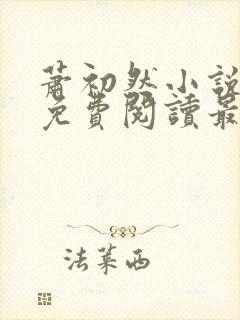 蕭初然小說
免費閱讀最
法萊西